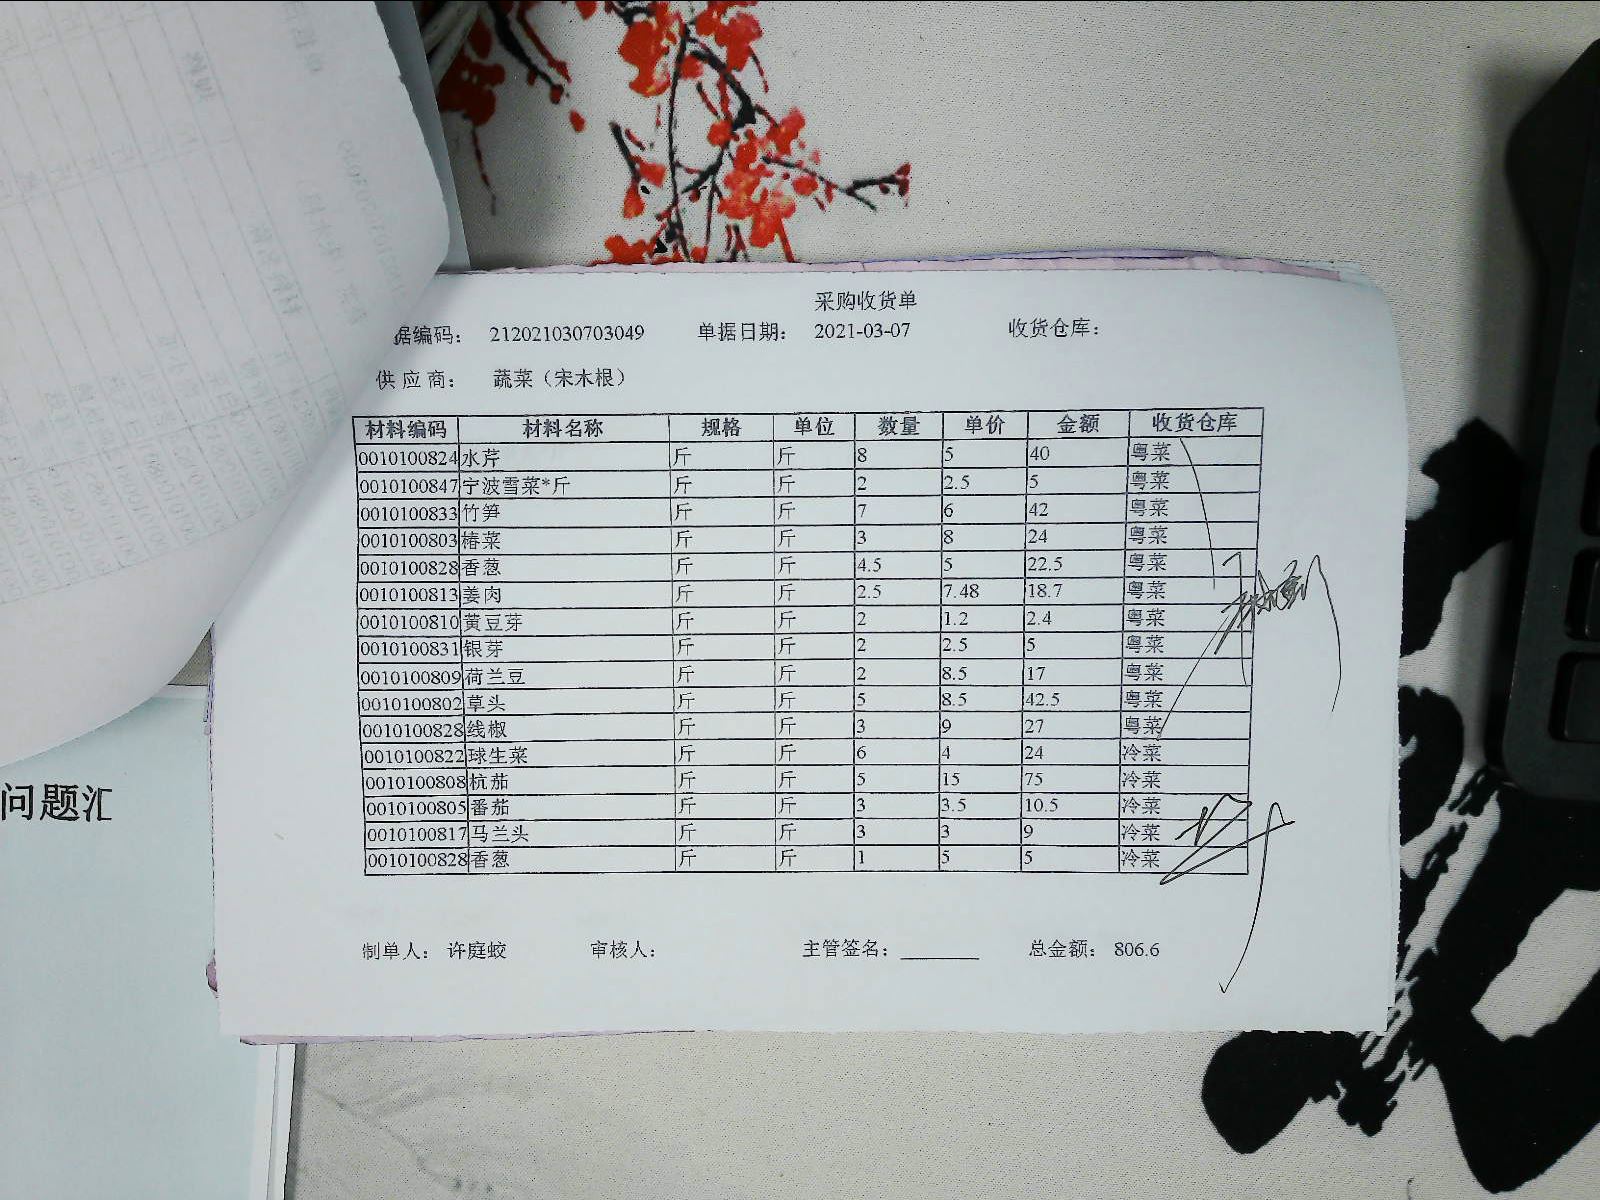 采购收货单
据编码： 212021030703049 单据日期： 2021-03-07 收货仓库：
供 应 商： 蔬菜（宋木根）
材料编码 材料名称 规格 单位 数量 单价 金额 收货仓库
0010100824 水芹 斤 斤 8 5 40 粤菜
0010100847 宁波雪菜*斤 斤 斤 2 2.5 5 粤菜
0010100833 竹笋 斤 斤 7 6 42 粤菜
0010100803 椿菜 斤 斤 3 8 24 粤菜
0010100828 香葱 斤 斤 4.5 5 22.5 粤菜
0010100813 姜肉 斤 斤 2.5 7.48 18.7 粤菜
0010100810 黄豆芽 斤 斤 2 1.2 2.4 粤菜
0010100831 银芽 斤 斤 2 2.5 5 粤菜
0010100809 荷兰豆 斤 斤 2 8.5 17 粤菜
0010100802 草头 斤 斤 5 8.5 42.5 粤菜
0010100828 线椒 斤 斤 3 9 27 粤菜
0010100822 球生菜 斤 斤 6 4 24 冷菜
0010100808 杭茄 斤 斤 5 15 75 冷菜
0010100805 番茄 斤 斤 3 3.5 10.5 冷菜
0010100817 马兰头 斤 斤 3 3 9 冷菜
0010100828 香葱 斤 斤 1 5 5 冷菜
制单人： 许庭蛟 审核人： 主管签名： 总金额： 806.6
问题汇